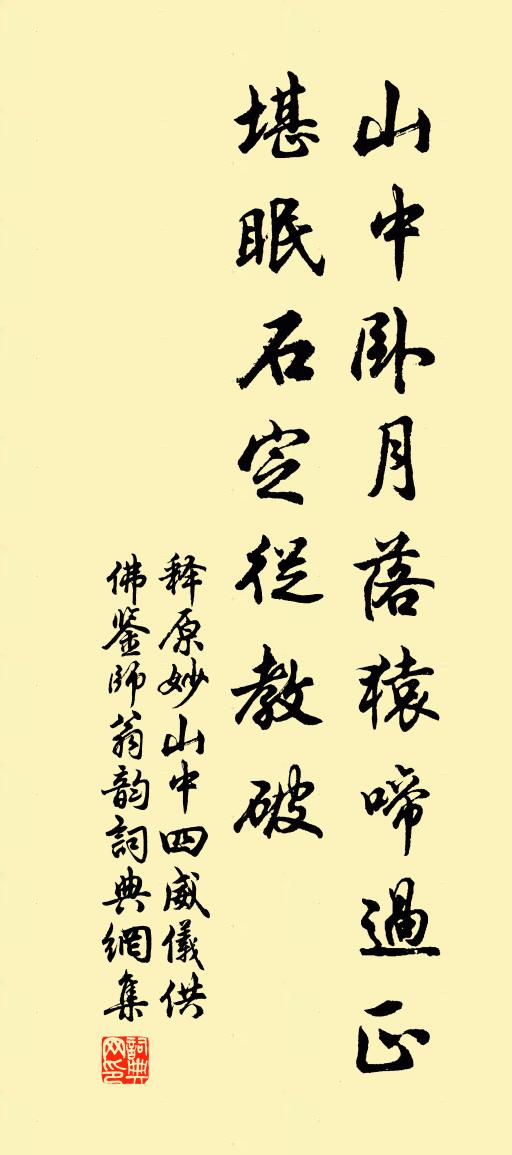 山中卧月落猿啼過正
堪眠石定從教破
释原妙山中四威儀供
佛鉴師翁韵詞典網集
詞典網印